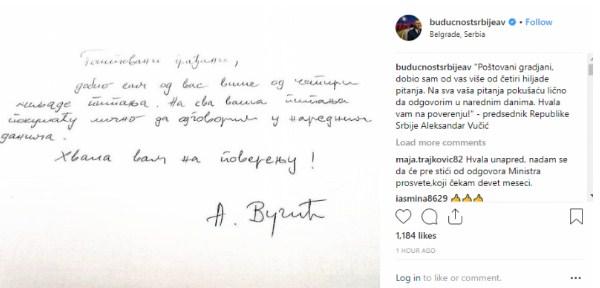 Поштовани грађани,
добио сам од вас више од четири
хиљаде питања. На сва ваша питања
покушаћу лично да одговорим у наредним
данима.
Хвала вам на поверењу!
А. Вучић
buducnostsrbijeav • Follow
Belgrade, Serbia
buducnostsrbijeav "Poštovani gradjani,
dobio sam od vas više od četiri hiljade
pitanja. Na sva vaša pitanja pokušaću lično
da odgovorim u narednim danima. Hvala
vam na poverenju!" - predsednik Republike
Srbije Aleksandar Vučić
Load more comments
maja.trajkovic82 Hvala unapred, nadam se
da će pre stići od odgovora Ministra
prosvete,koji čekam devet meseci.
iasmina8629 🙏🙏🙏
1,184 likes
1 HOUR AGO
Log in to like or comment.